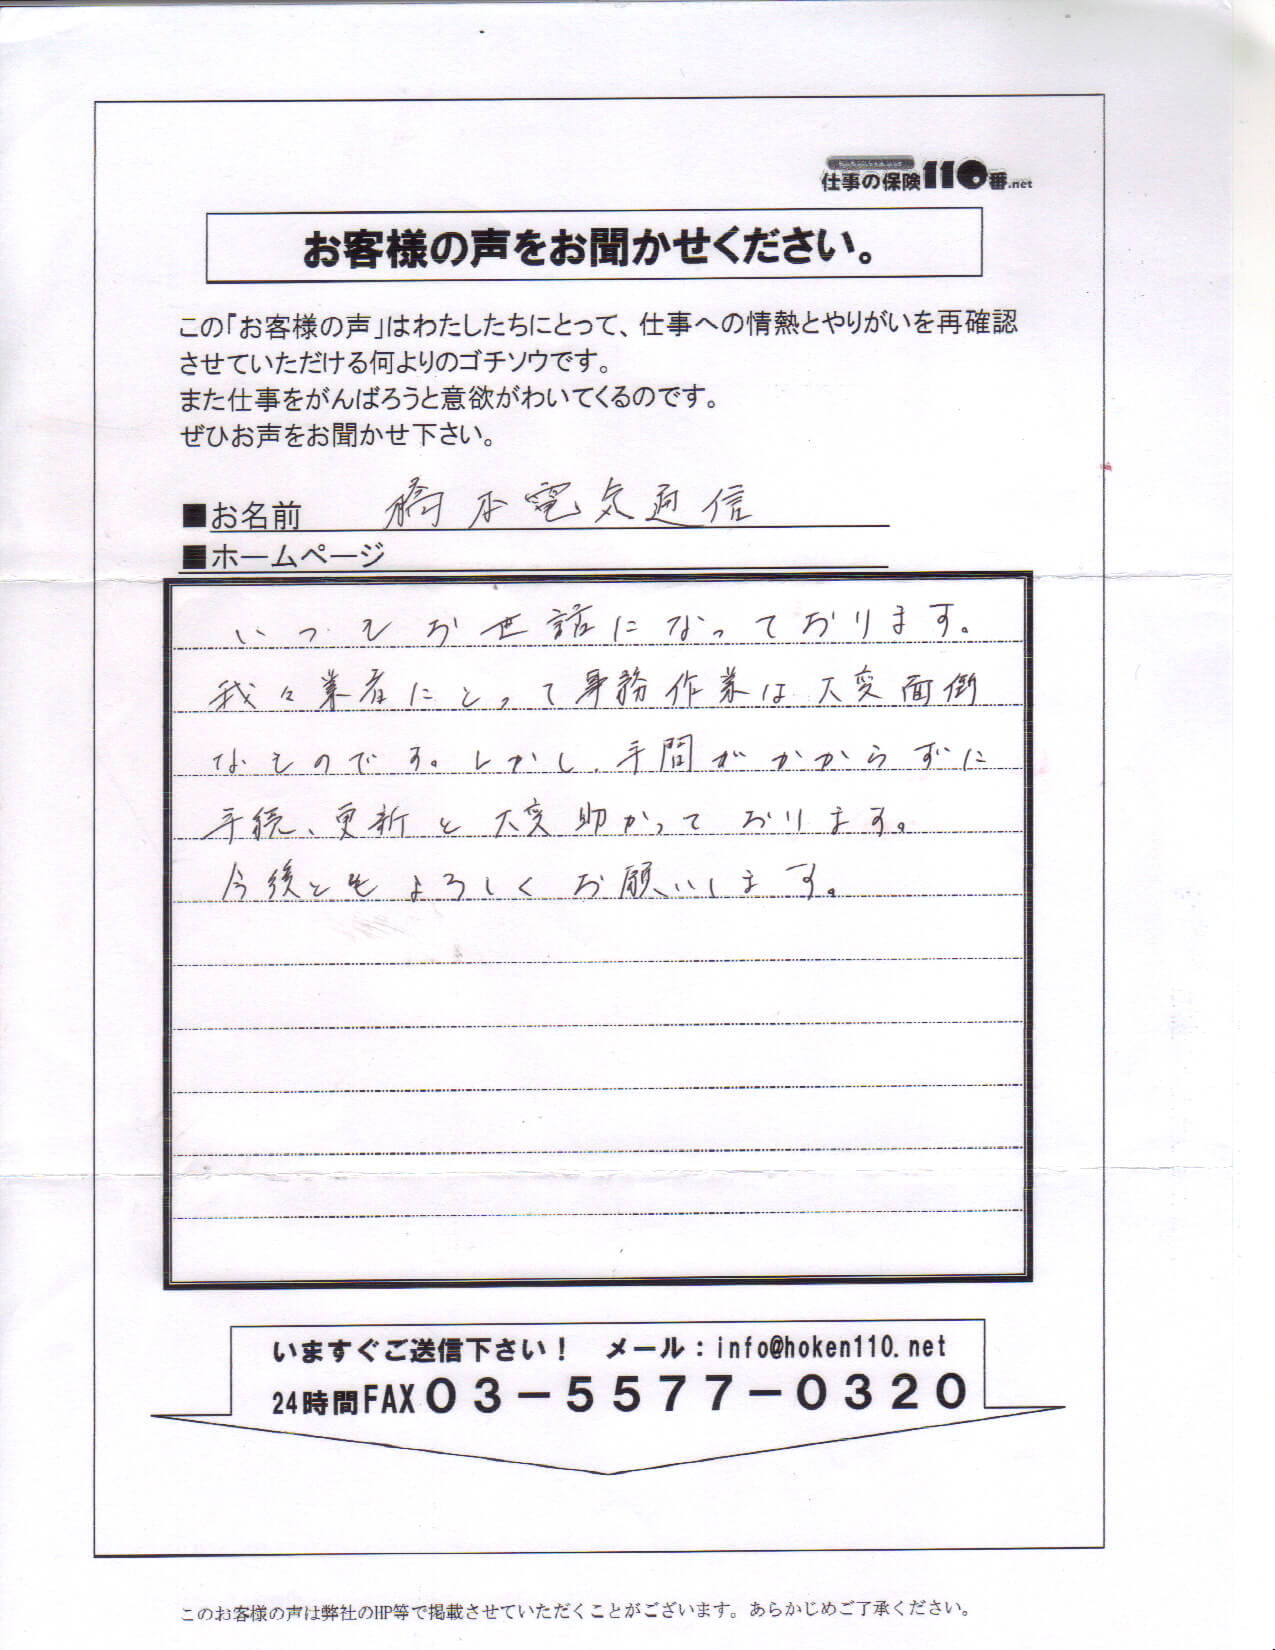 仕事の保険110番.net
お客様の声をお聞かせください。
この「お客様の声」はわたしたちにとって、仕事への情熱とやりがいを再確認
させていただける何よりのゴチソウです。
また仕事をがんばろうと意欲がわいてくるのです。
ぜひお声をお聞かせ下さい。
■お名前 橋本電気通信
■ホームページ
いつもお世話になっております。
我々業者にとって事務作業は大変面倒
なものです。しかし、手間がかからずに
手続、更新と大変助かっております。
今後ともよろしくお願いします。
いますぐご送信下さい! メール:info@hoken110.net
24時間FAX03-5577-0320
このお客様の声は弊社のHP等で掲載させていただくことがございます。あらかじめご了承ください。